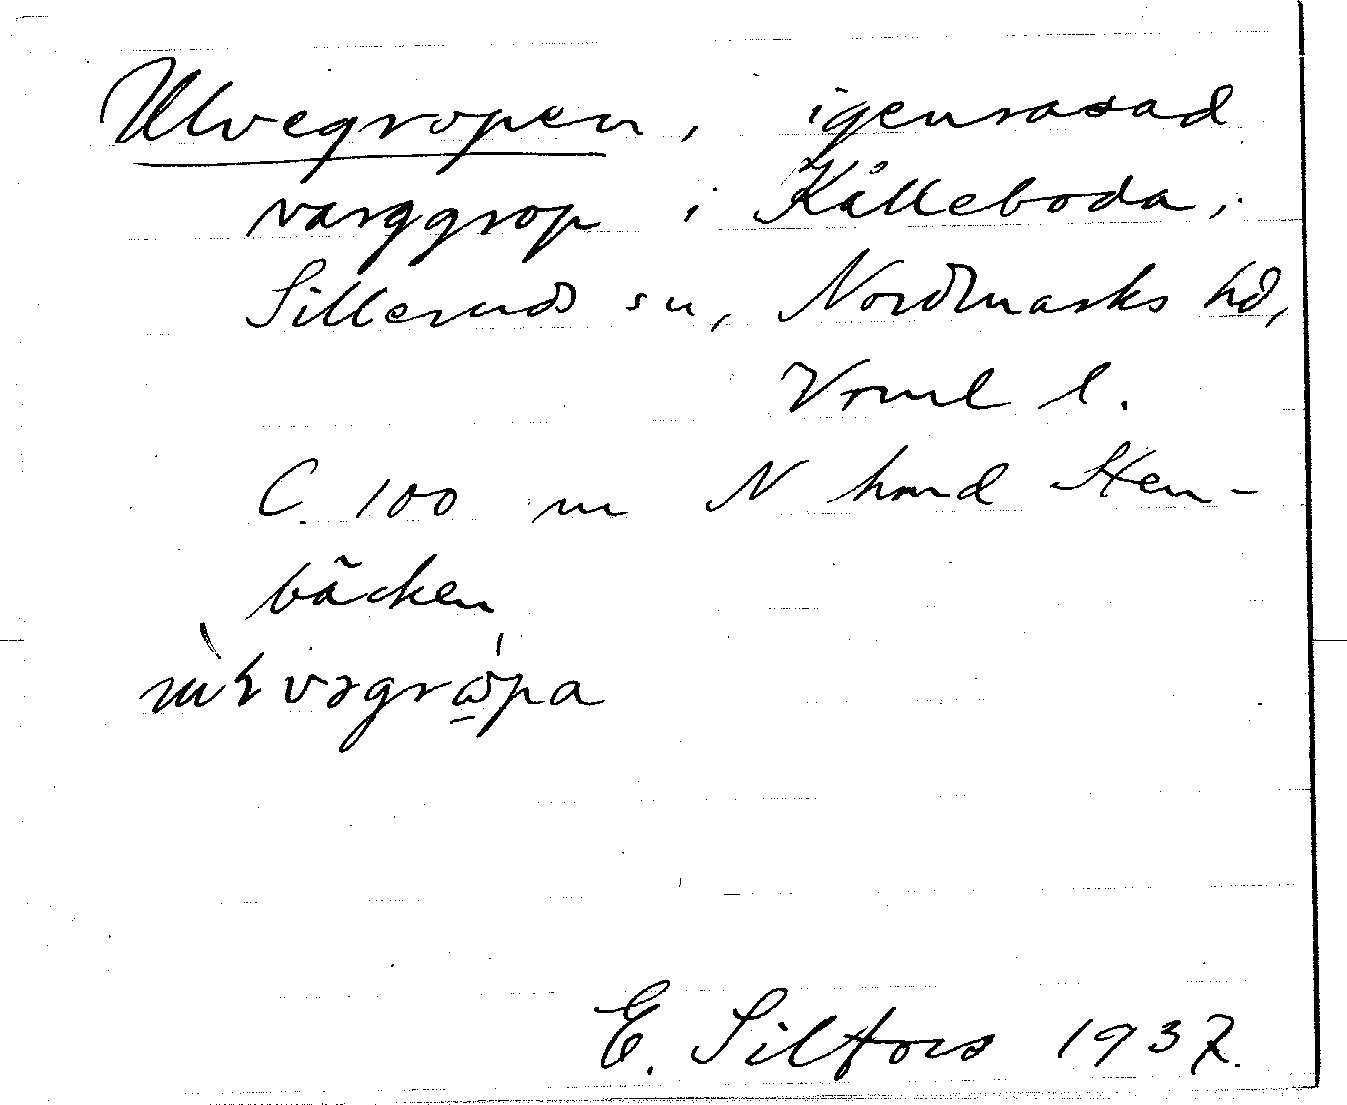 Ulvegropen, igenrasad
varggrop i Kålleboda,
Silleruds sn, Nordmarks hd,
Vrml l.
C. 100 m N hmd Sten-
bäcken
E. Silfors 1937.